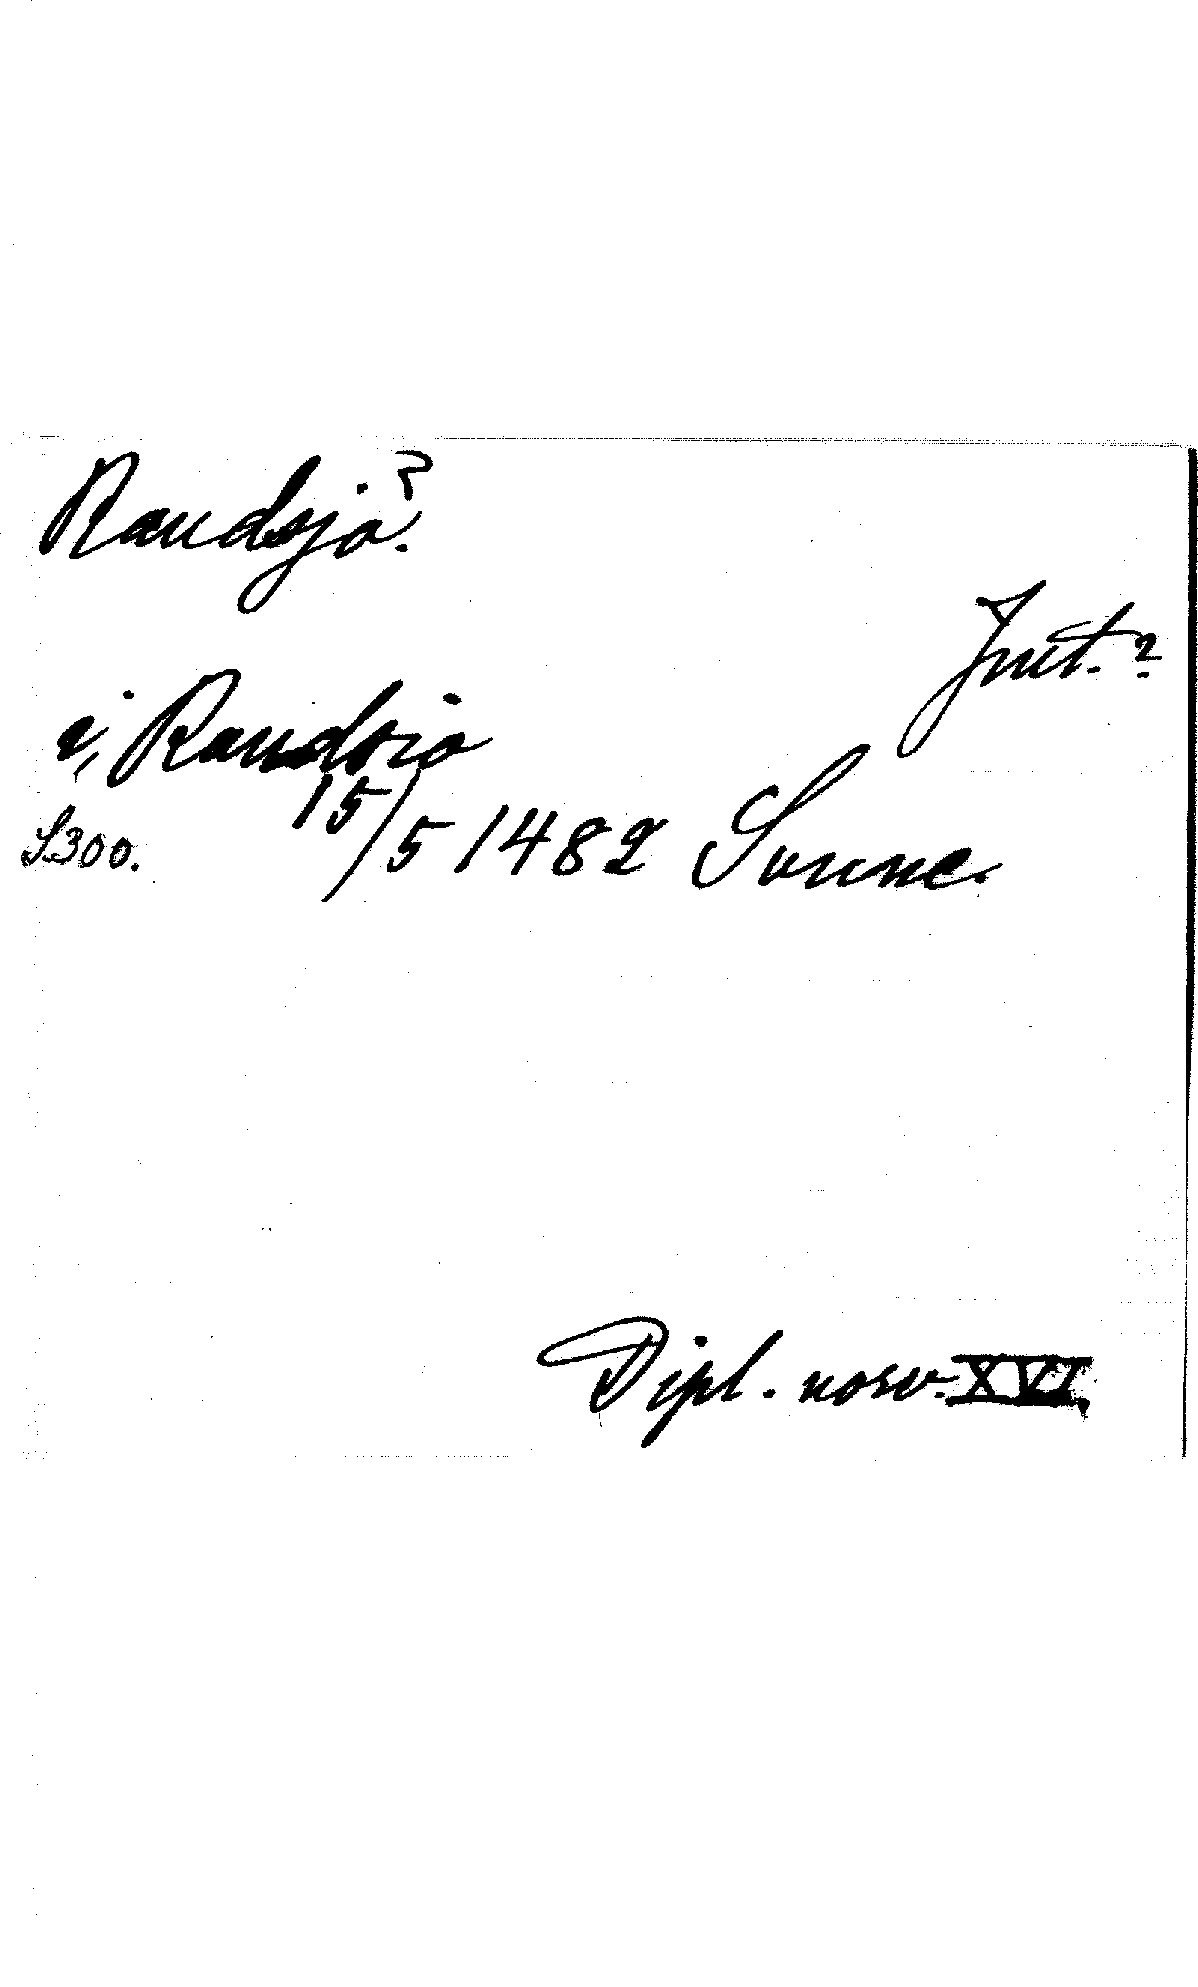 Raudsjö?
Jmt.?
i, Raudsio
S.300. 15/5 1482 Sunne.
Dipl. norv. XVI.